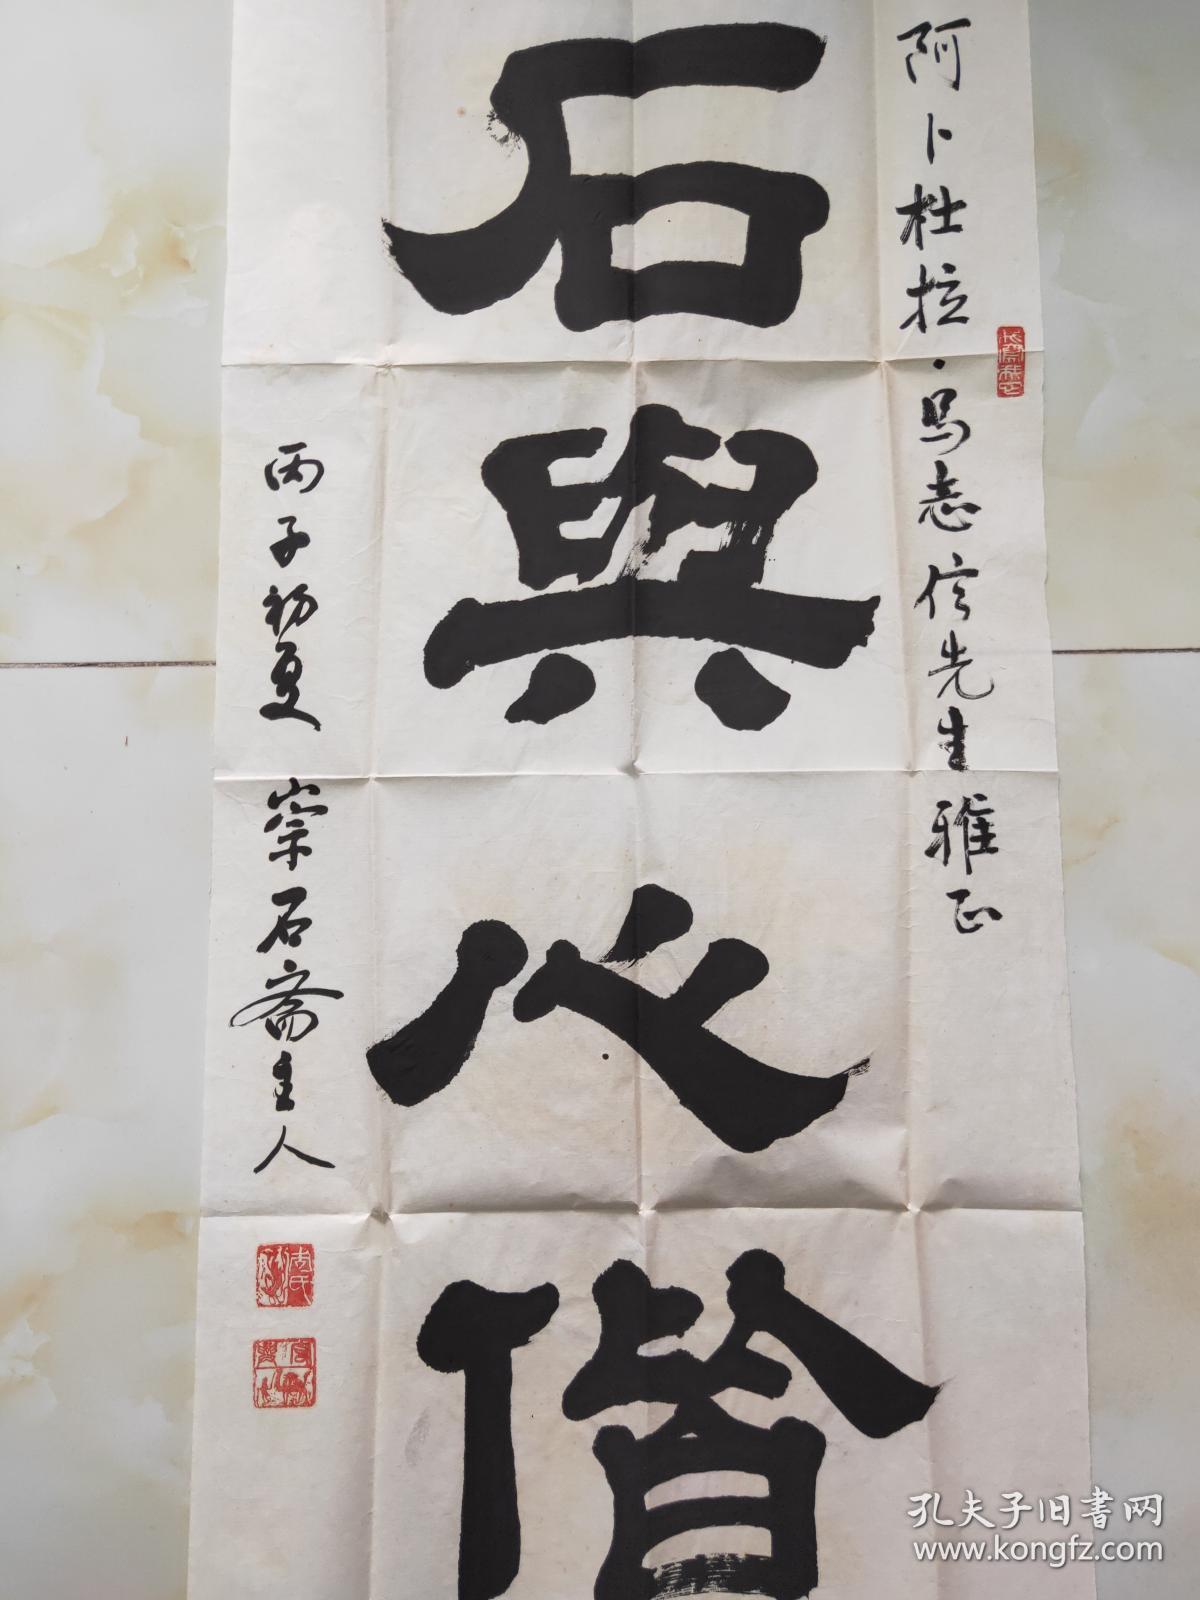 阿卜杜拉·马志信先生雅正
石與心偕
丙子初夏 崇石斋主人
孔夫子旧书网
www.kongfz.com